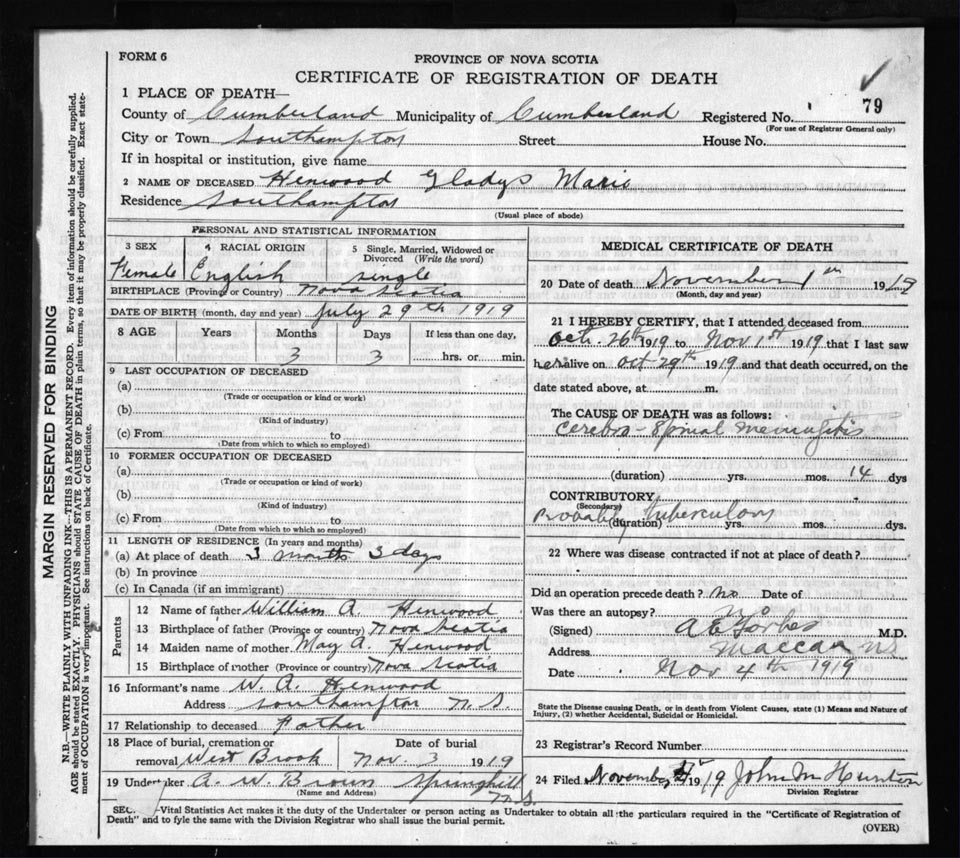 FORM 6
PROVINCE OF NOVA SCOTIA
CERTIFICATE OF REGISTRATION OF DEATH
79
1 PLACE OF DEATH—
County of Cumberland Municipality of Cumberland Registered No.
(For use of Registrar General only)
City or Town Southampton Street House No.
If in hospital or institution, give name
2 NAME OF DECEASED Henwood Gladys Marie
Residence Southampton
(Usual place of abode)
PERSONAL AND STATISTICAL INFORMATION
3 SEX 4 RACIAL ORIGIN 5 Single, Married, Widowed or Divorced (Write the word)
Female English single
BIRTHPLACE (Province or Country) Nova Scotia
DATE OF BIRTH (month, day and year) July 29th 1919
8 AGE Years Months Days If less than one day,
3 3 hrs. or min.
9 LAST OCCUPATION OF DECEASED
(a)
(Trade or occupation or kind or work)
(b)
(Kind of industry)
(c) From to
(Date from which to which so employed)
10 FORMER OCCUPATION OF DECEASED
(a)
(Trade or occupation or kind or work)
(b)
(Kind of industry)
(c) From to
(Date from which to which so employed)
11 LENGTH OF RESIDENCE (In years and months)
(a) At place of death 3 months 3 days
(b) In province
(c) In Canada (if an immigrant)
Parents
12 Name of father William A. Henwood
13 Birthplace of father (Province or country) Nova Scotia
14 Maiden name of mother May A. Henwood
15 Birthplace of mother (Province or country) Nova Scotia
16 Informant's name W. A. Henwood
Address Southampton N.S.
17 Relationship to deceased Father
18 Place of burial, cremation or removal West Brook Date of burial Nov. 3 1919
19 Undertaker A. W. Brown Springhill N.S.
(Name and Address)
MEDICAL CERTIFICATE OF DEATH
20 Date of death November 1 1919
(Month, day and year)
21 I HEREBY CERTIFY, that I attended deceased from
Oct. 26th 1919 to Nov 1st 1919 that I last saw
her alive on Oct 29th 1919 and that death occurred, on the
date stated above, at m.
The CAUSE OF DEATH was as follows:
Cerebro-Spinal Meningitis
(duration) yrs. mos. 14 dys
CONTRIBUTORY
(Secondary)
Probably tuberculous
(duration) yrs. mos. dys.
22 Where was disease contracted if not at place of death?
Did an operation precede death? no Date of
Was there an autopsy? no
(Signed) A E Forbes M.D.
Address Maccan NS
Date Nov 4th 1919
State the Disease causing Death, or in death from Violent Causes, state (1) Means and Nature of
Injury, (2) whether Accidental, Suicidal or Homicidal.
23 Registrar's Record Number
24 Filed November 1919 John M Hunton
Division Registrar
SEC. —Vital Statistics Act makes it the duty of the Undertaker or person acting as Undertaker to obtain all the particulars required in the "Certificate of Registration of
Death" and to fyle the same with the Division Registrar who shall issue the burial permit.
(OVER)
MARGIN RESERVED FOR BINDING
N.B.—WRITE PLAINLY WITH UNFADING INK—THIS IS A PERMANENT RECORD. Every item of information should be carefully supplied.
AGE should be stated EXACTLY. PHYSICIANS should STATE CAUSE OF DEATH in plain terms, so that it may be properly classified. Exact state-
ment of OCCUPATION is very important. See instructions on back of Certificate.